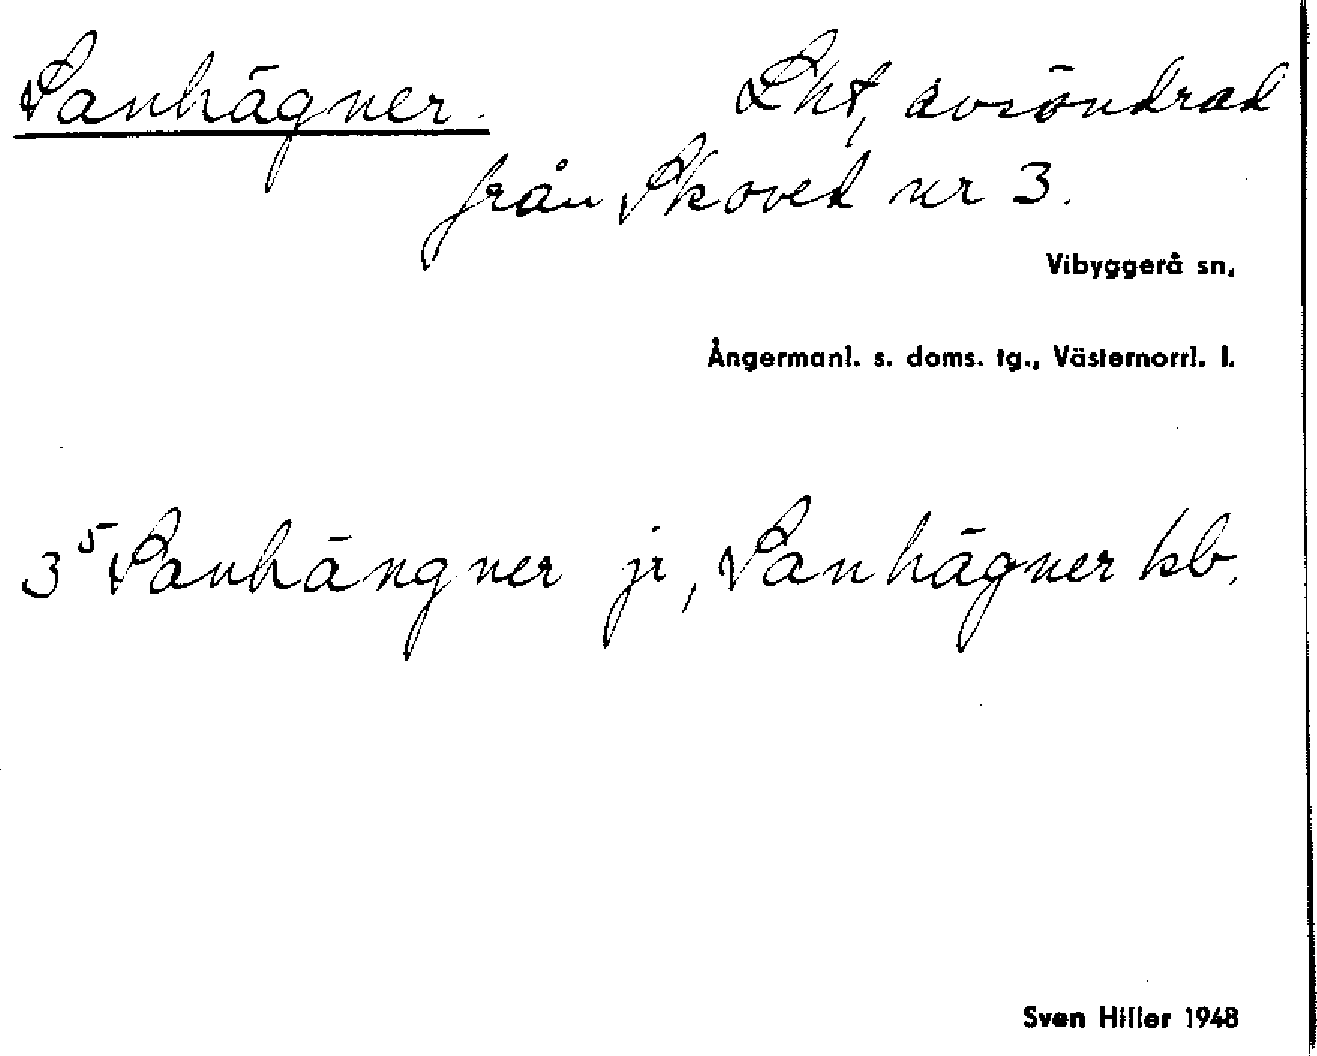 Sanhägner. Lht, avsöndrad
från Skoved nr 3.
Vibyggerå sn.
Ångermanl. s. doms. tg., Västernorrl. l.
3⁵ Sanhängner jr, Sanhägner kb.
Sven Hiller 1948